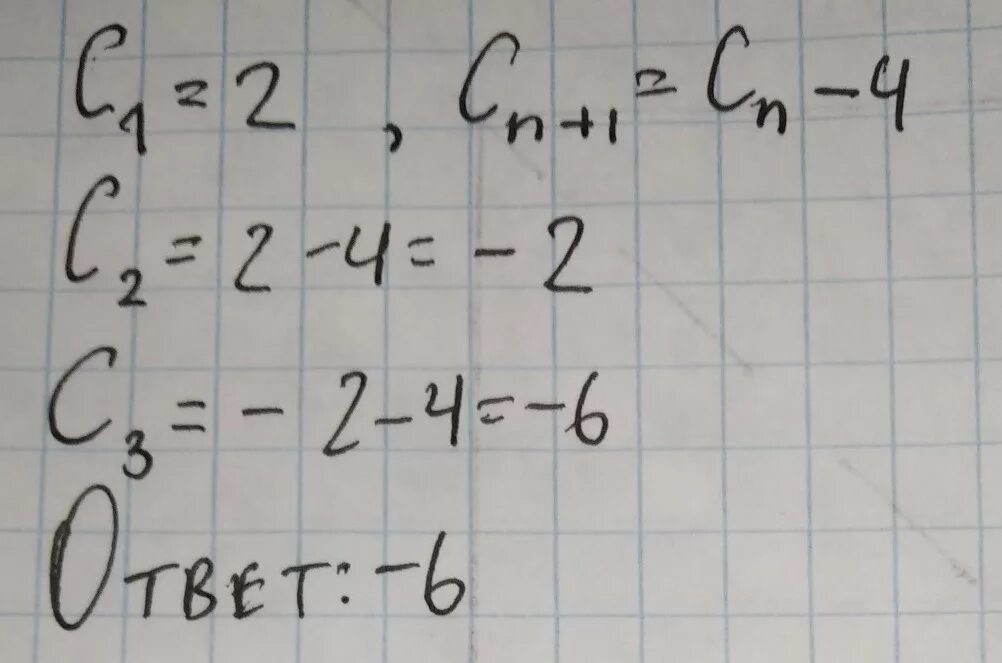 C₁ = 2 , Cₙ₊₁ = Cₙ - 4
C₂ = 2 - 4 = - 2
C₃ = - 2 - 4 = - 6
Ответ: - 6